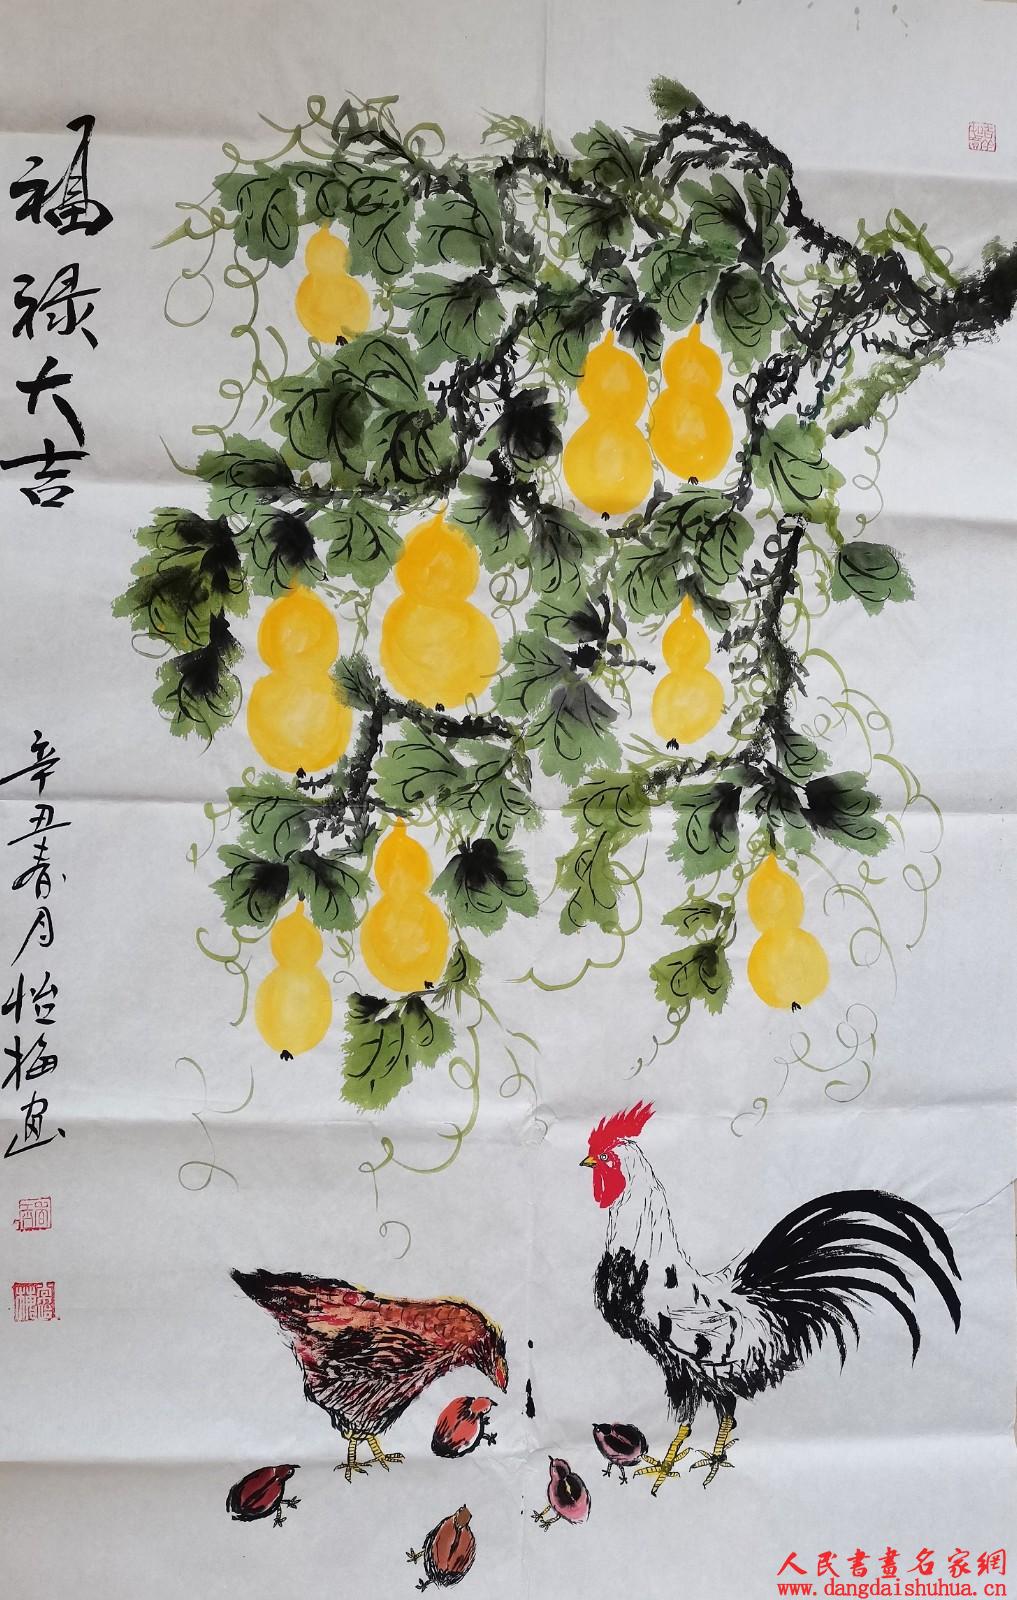 福禄大吉
辛丑春月怡梅画
人民書畫名家網
www.dangdaishuhua.cn